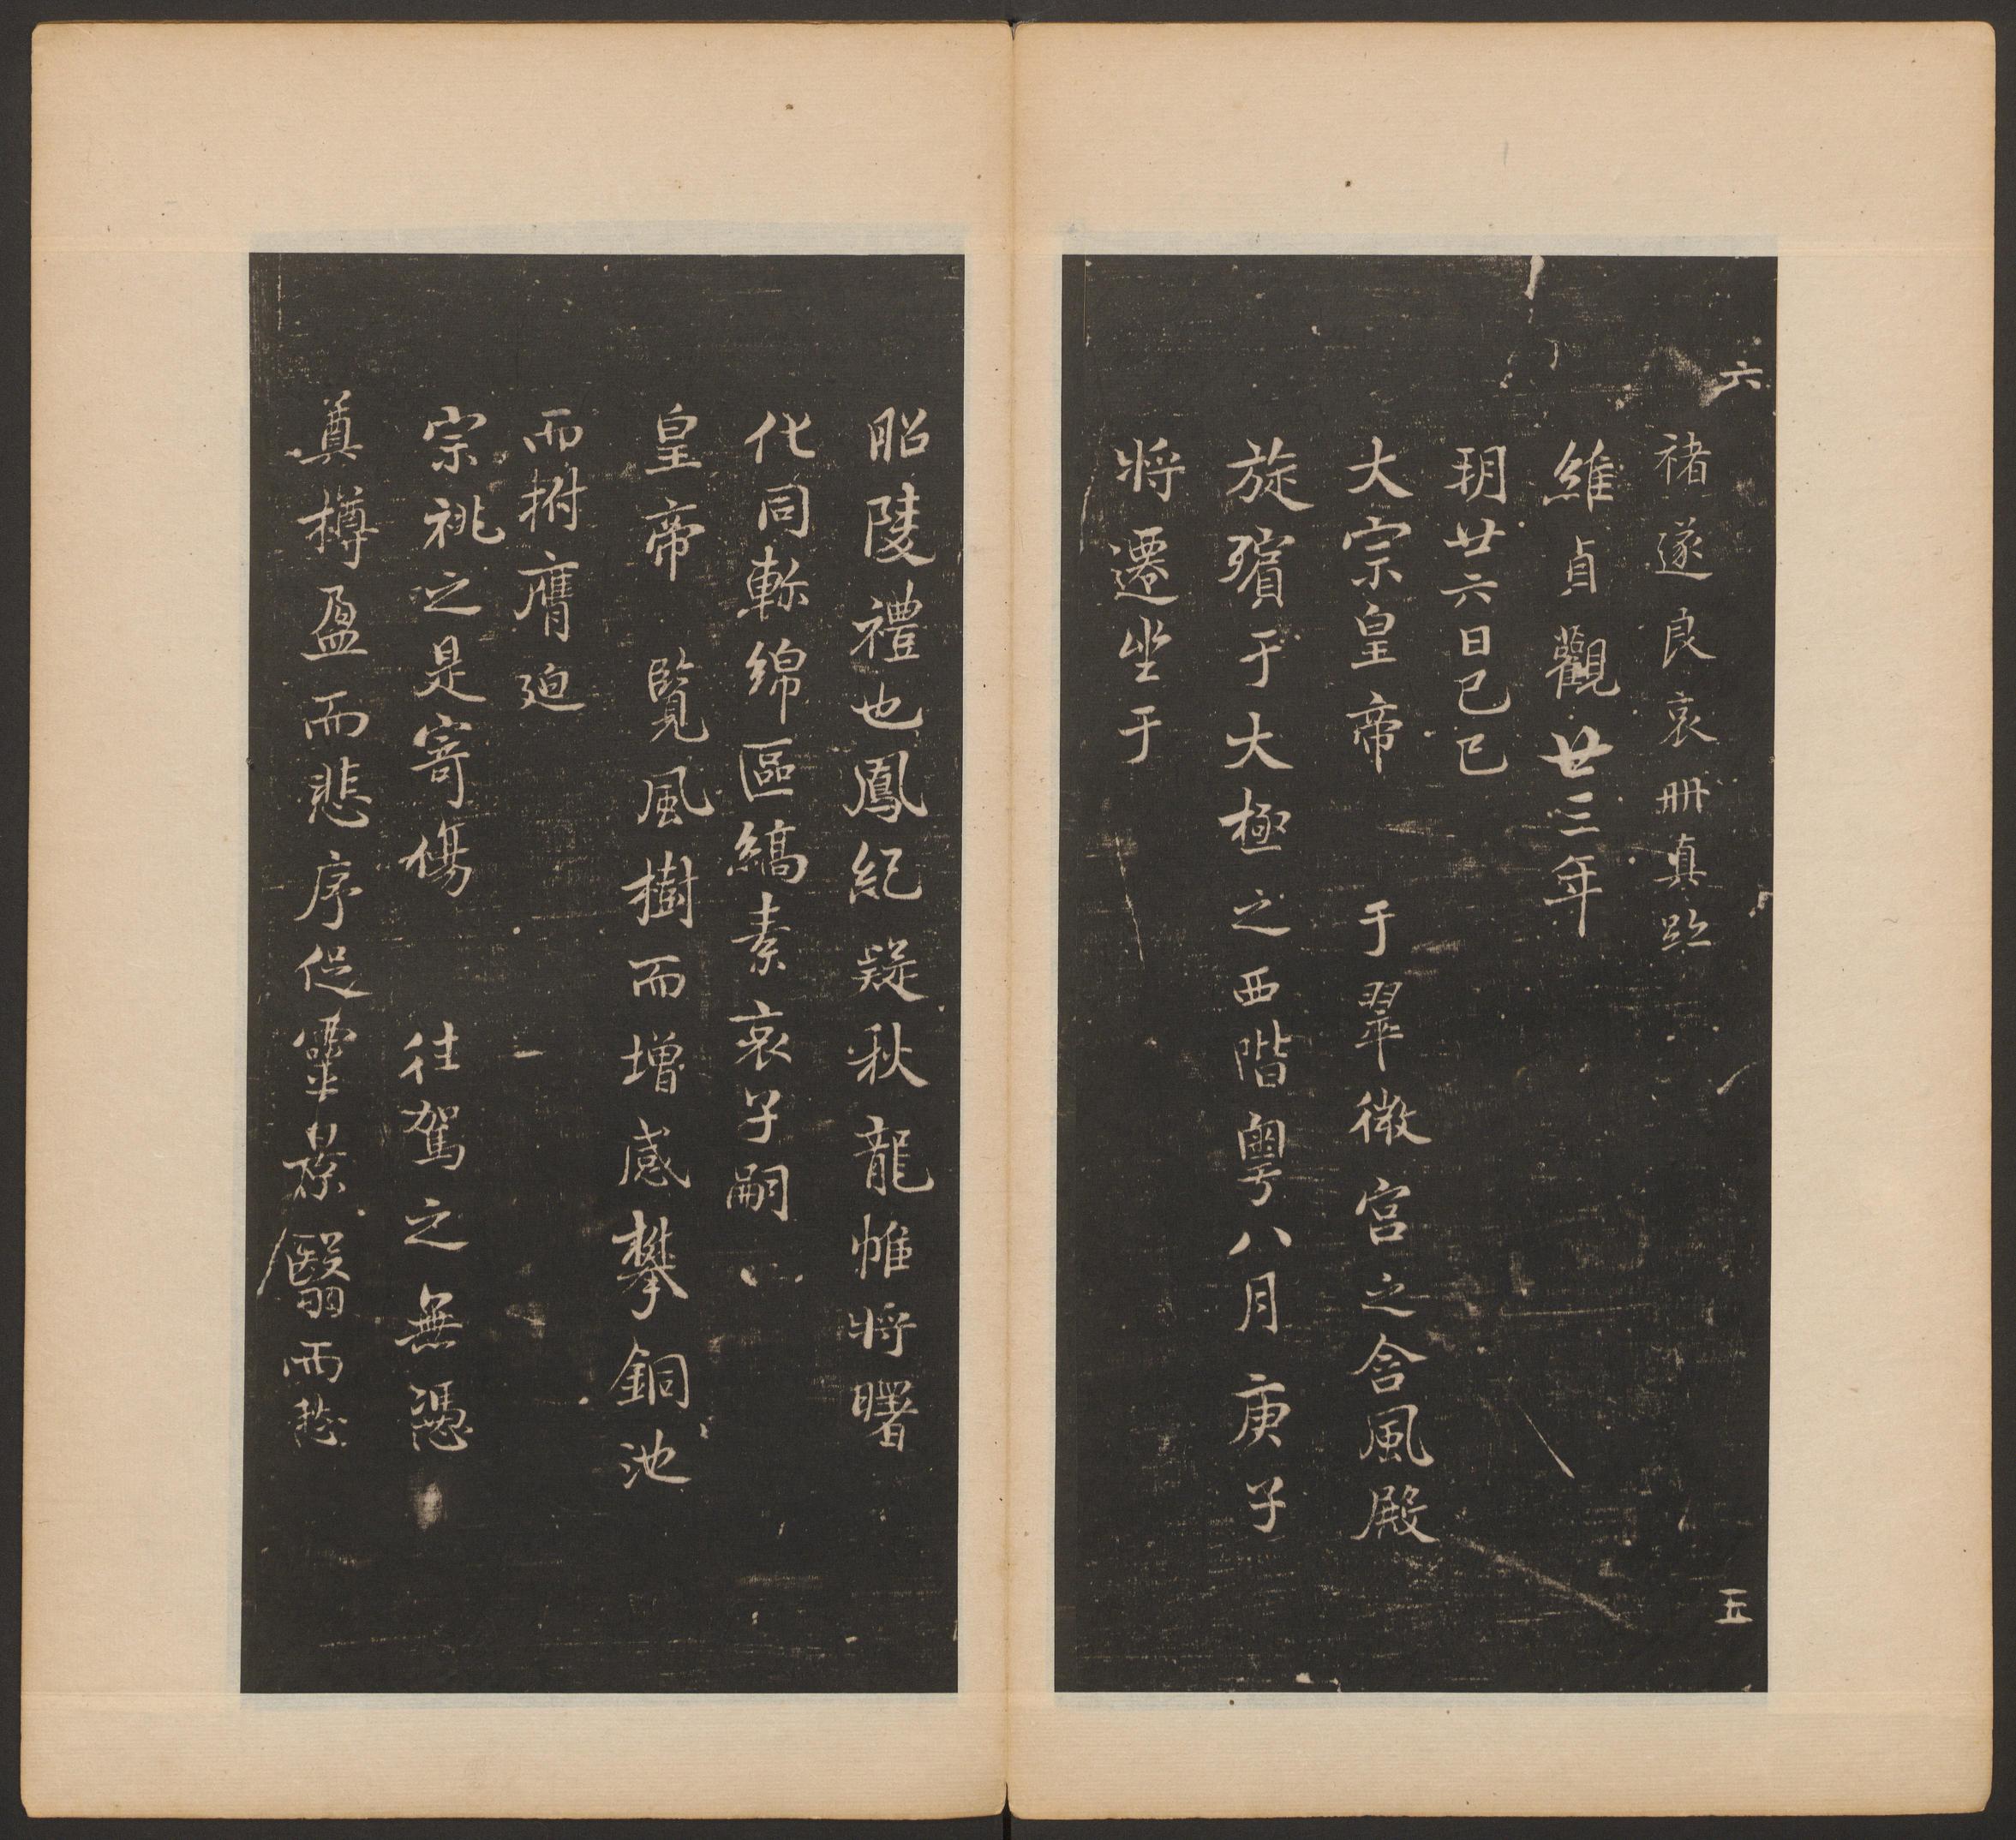 六
褚遂良哀冊真跡
維貞觀廿三年
玥廿六日己巳
大宗皇帝 于翠微宮之含風殿
旋殯于大極之西階粵八月庚子
將遷坐于
五
昭陵禮也鳳紀疑秋龍帷將曙
化同軫綿區縞素哀子嗣
皇帝 覽風樹而增感攀銅池
而拊膺迴
宗祧之是寄傷 往駕之無憑
奠樽盈而悲序促靈蔡翳而愁